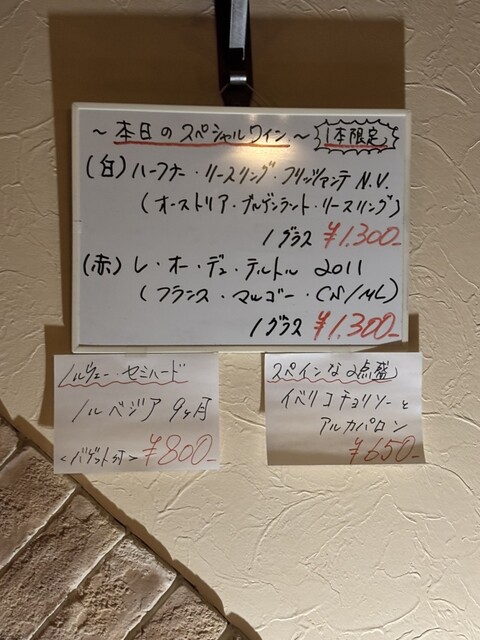 ～本日のスペシャルワイン～ 1本限定
(白)ハーフナー・リースリング・フリッツァンテ N.V.
(オーストリア・ブルゲンラント・リースリング)
1グラス ¥1.300-
(赤)レ・オー・デュ・テルトル 2011
(フランス・マルゴー・CS/ML)
1グラス ¥1.300-
ノルウェー・セミハード
ノルベジア 9ヶ月
<バゲット付> ¥800-
スペインな2点盛
イベリコチョリソーと
アルカパロン
¥650-